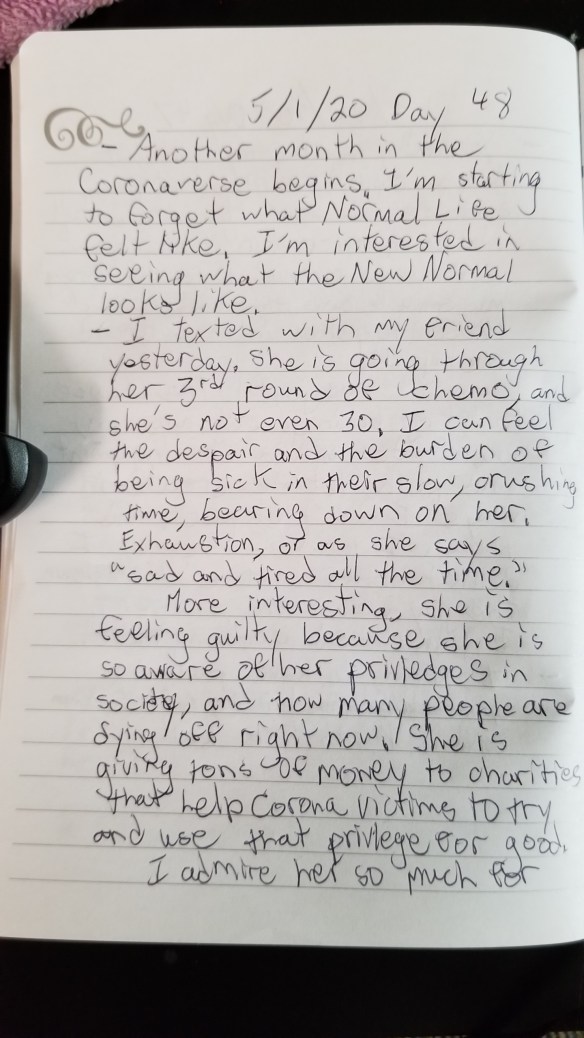 5/1/20 Day 48
- Another month in the
Coronaverse begins. I'm starting
to forget what Normal Life
felt like. I'm interested in
seeing what the New Normal
looks like.
- I texted with my friend
yesterday. She is going through
her 3rd round of chemo, and
she's not even 30. I can feel
the despair and the burden of
being sick in their slow, crushing
time, bearing down on her.
Exhaustion, or as she says
"sad and tired all the time."
More interesting, she is
feeling guilty because she is
so aware of her priviledges in
society, and how many people are
dying off right now. She is
giving tons of money to charities
that help Corona victims to try
and use that privlege for good.
I admire her so much for